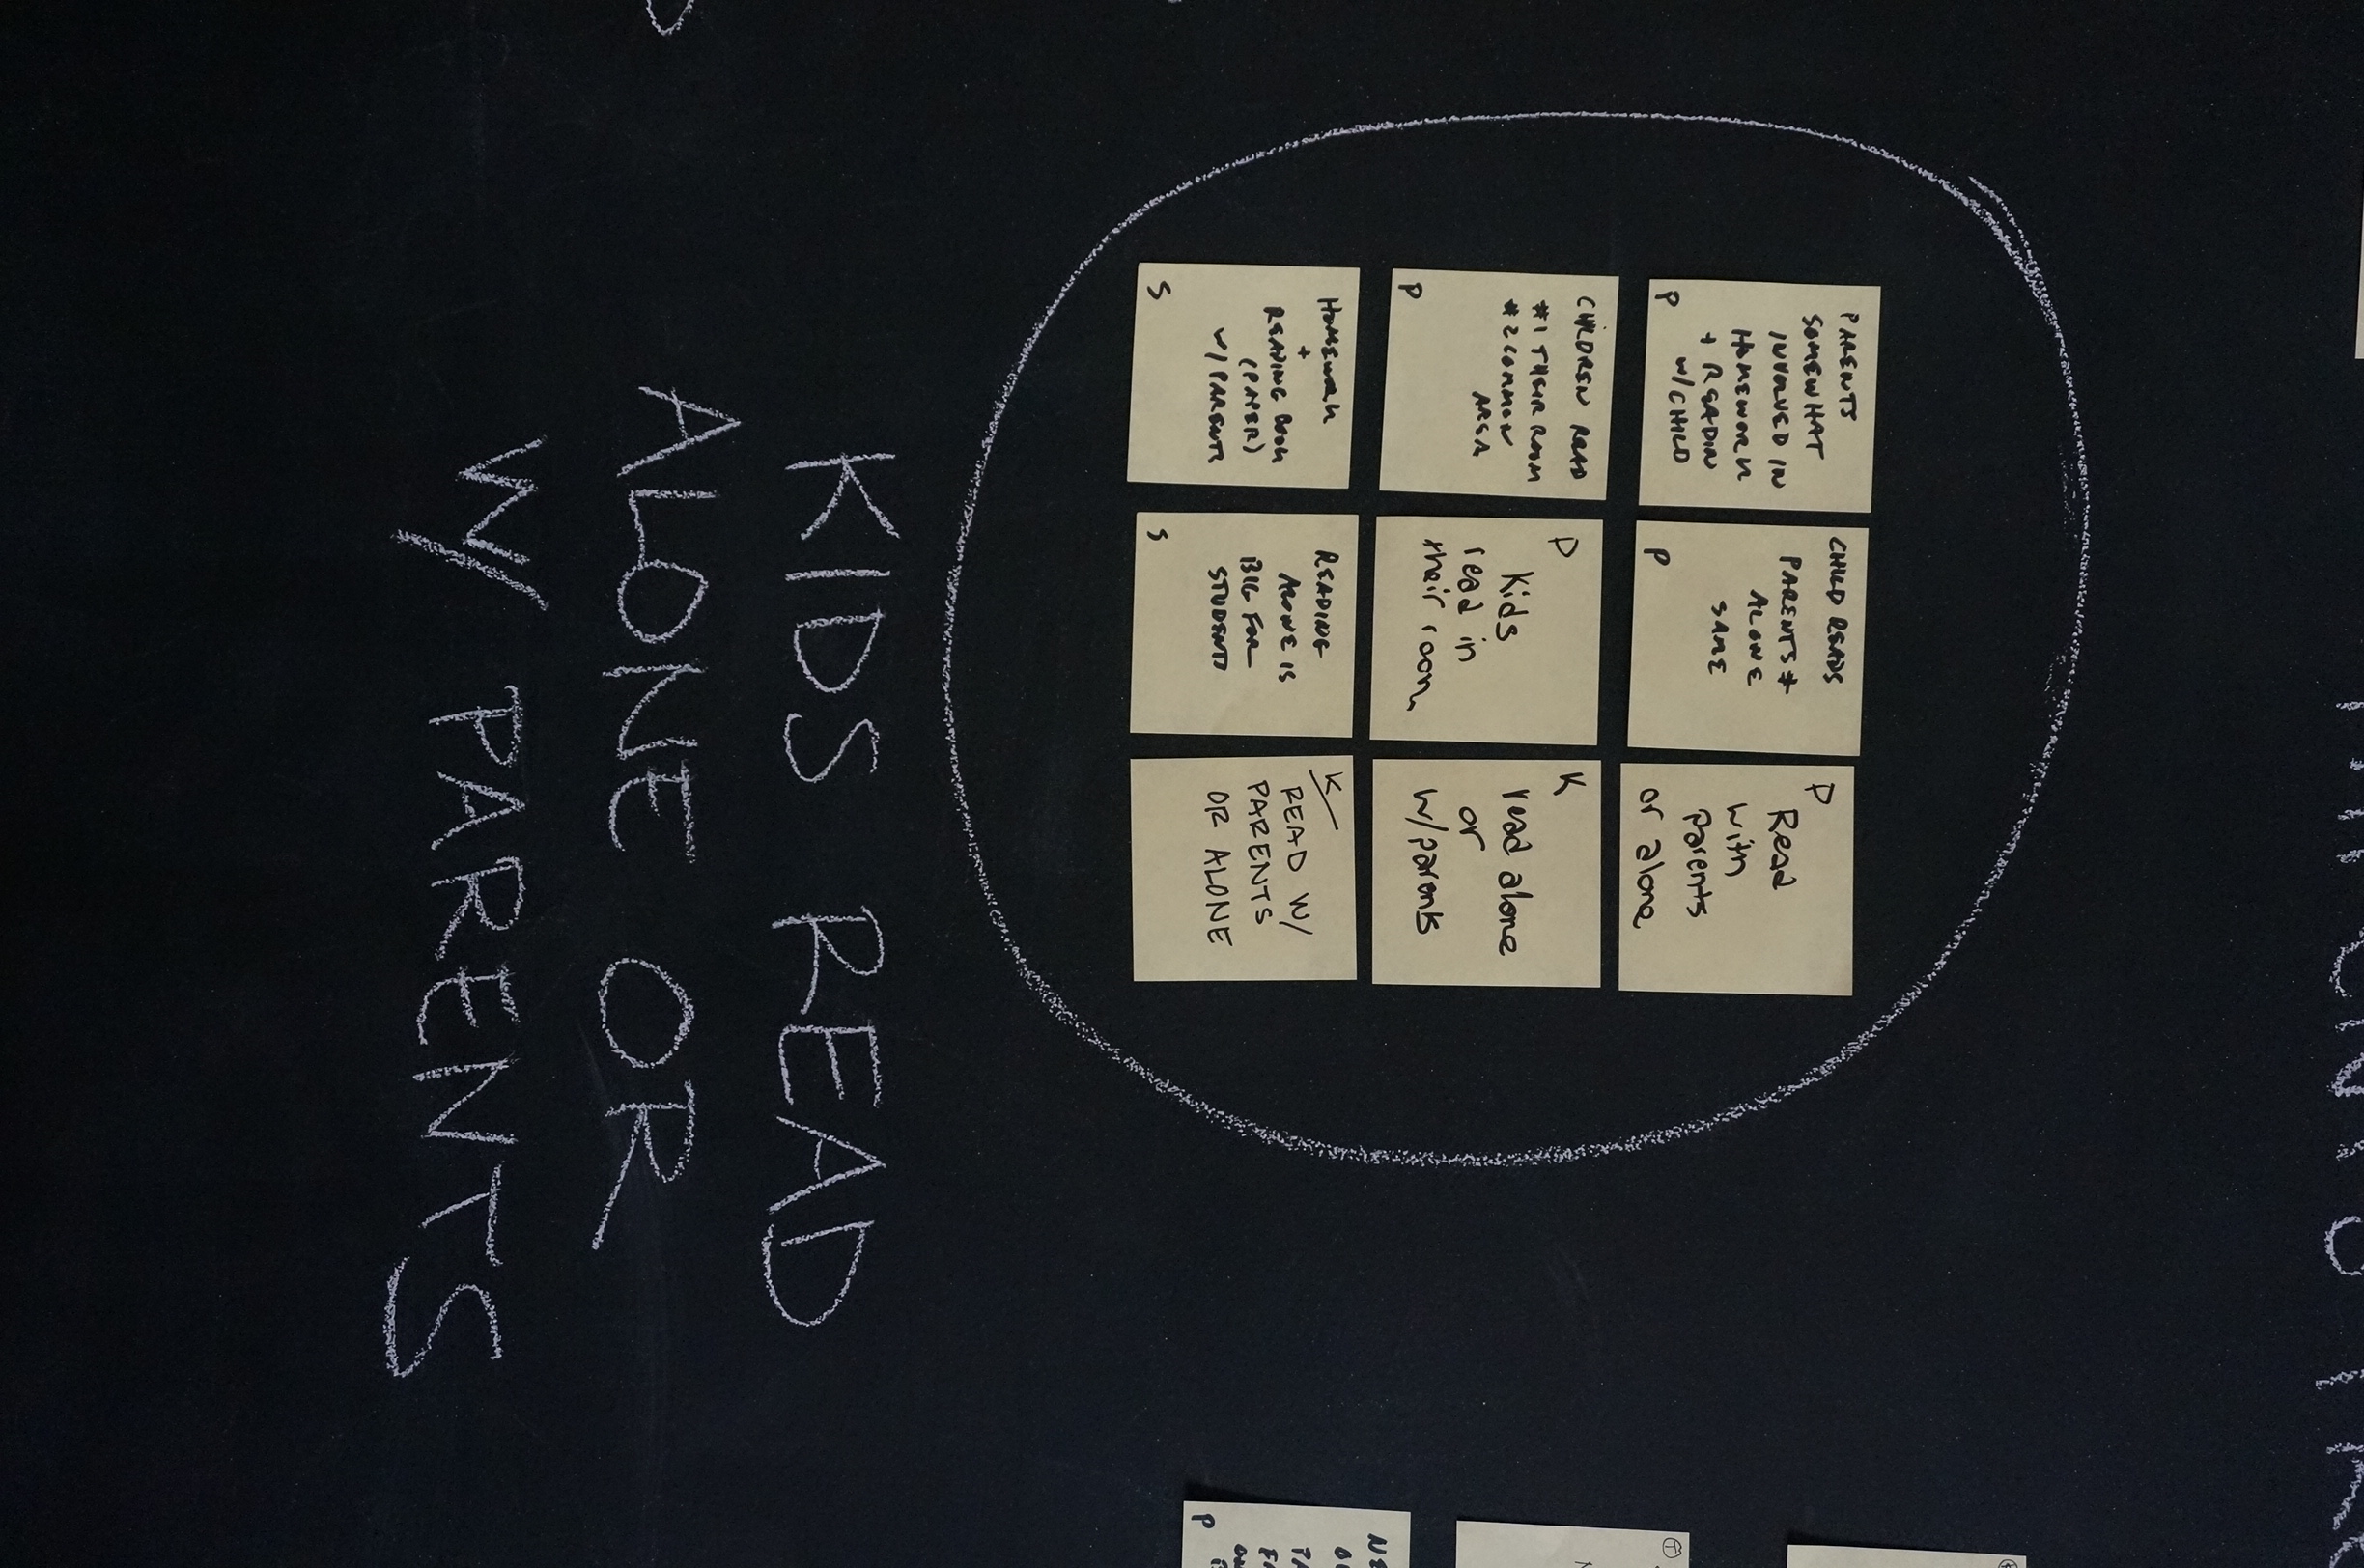 PARENTS
SOMEWHAT
INVOLVED IN
HOMEWORK
+ READIN
W/CHILD
P
CHILD READS
PARENTS +
ALONE
SAME
P
P
Read
with
parents
or alone
CHILDREN READ
#1 THEIR ROOM
#2 COMMON
AREA
P
P
Kids
read in
their room
K
read alone
or
w/parents
HOMEWORK
+
READING BOOK
(PAPER)
W/PARENTS
S
READING
ALONE IS
BIG FOR
STUDENTS
S
K
READ W/
PARENTS
OR ALONE
T
P
KIDS READ
ALONE OR
W/ PARENTS